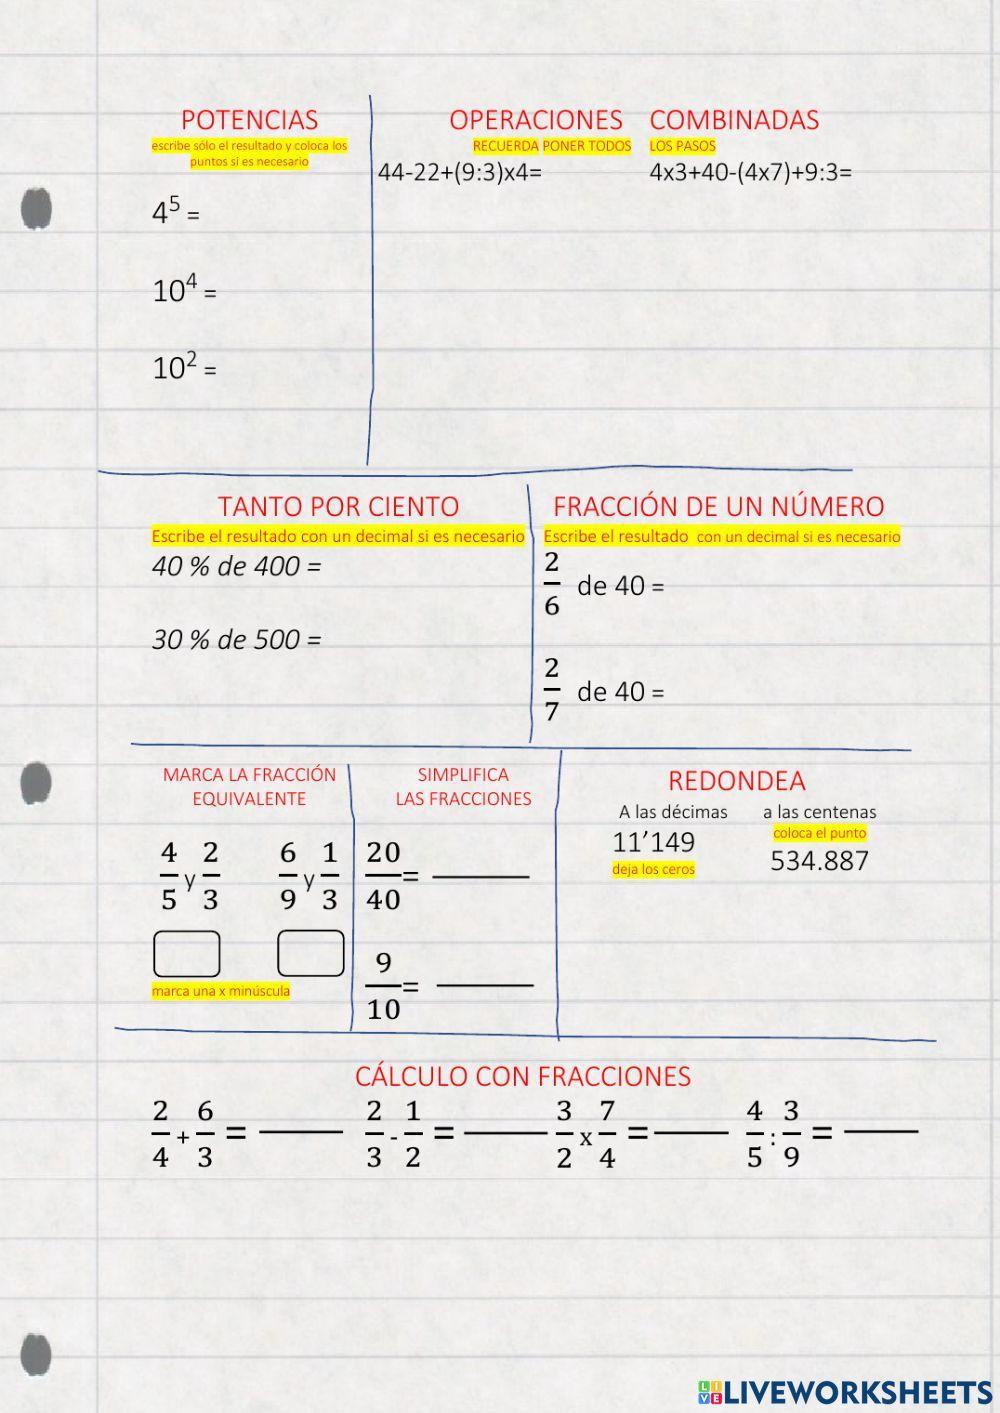 POTENCIAS
escribe sólo el resultado y coloca los
puntos si es necesario
4⁵ =
10⁴ =
10² =
OPERACIONES COMBINADAS
RECUERDA PONER TODOS LOS PASOS
44-22+(9:3)x4=
4x3+40-(4x7)+9:3=
TANTO POR CIENTO
Escribe el resultado con un decimal si es necesario
40 % de 400 =
30 % de 500 =
FRACCIÓN DE UN NÚMERO
Escribe el resultado con un decimal si es necesario
2/6 de 40 =
2/7 de 40 =
MARCA LA FRACCIÓN
EQUIVALENTE
4/5 y 2/3 6/9 y 1/3
marca una x minúscula
SIMPLIFICA
LAS FRACCIONES
20/40 = ____
9/10 = ____
REDONDEA
A las décimas
11’149
deja los ceros
a las centenas
coloca el punto
534.887
CÁLCULO CON FRACCIONES
2/4 + 6/3 = ____ 2/3 - 1/2 = ____ 3/2 x 7/4 = ____ 4/5 : 3/9 = ____
LIVE LIVEWORKSHEETS